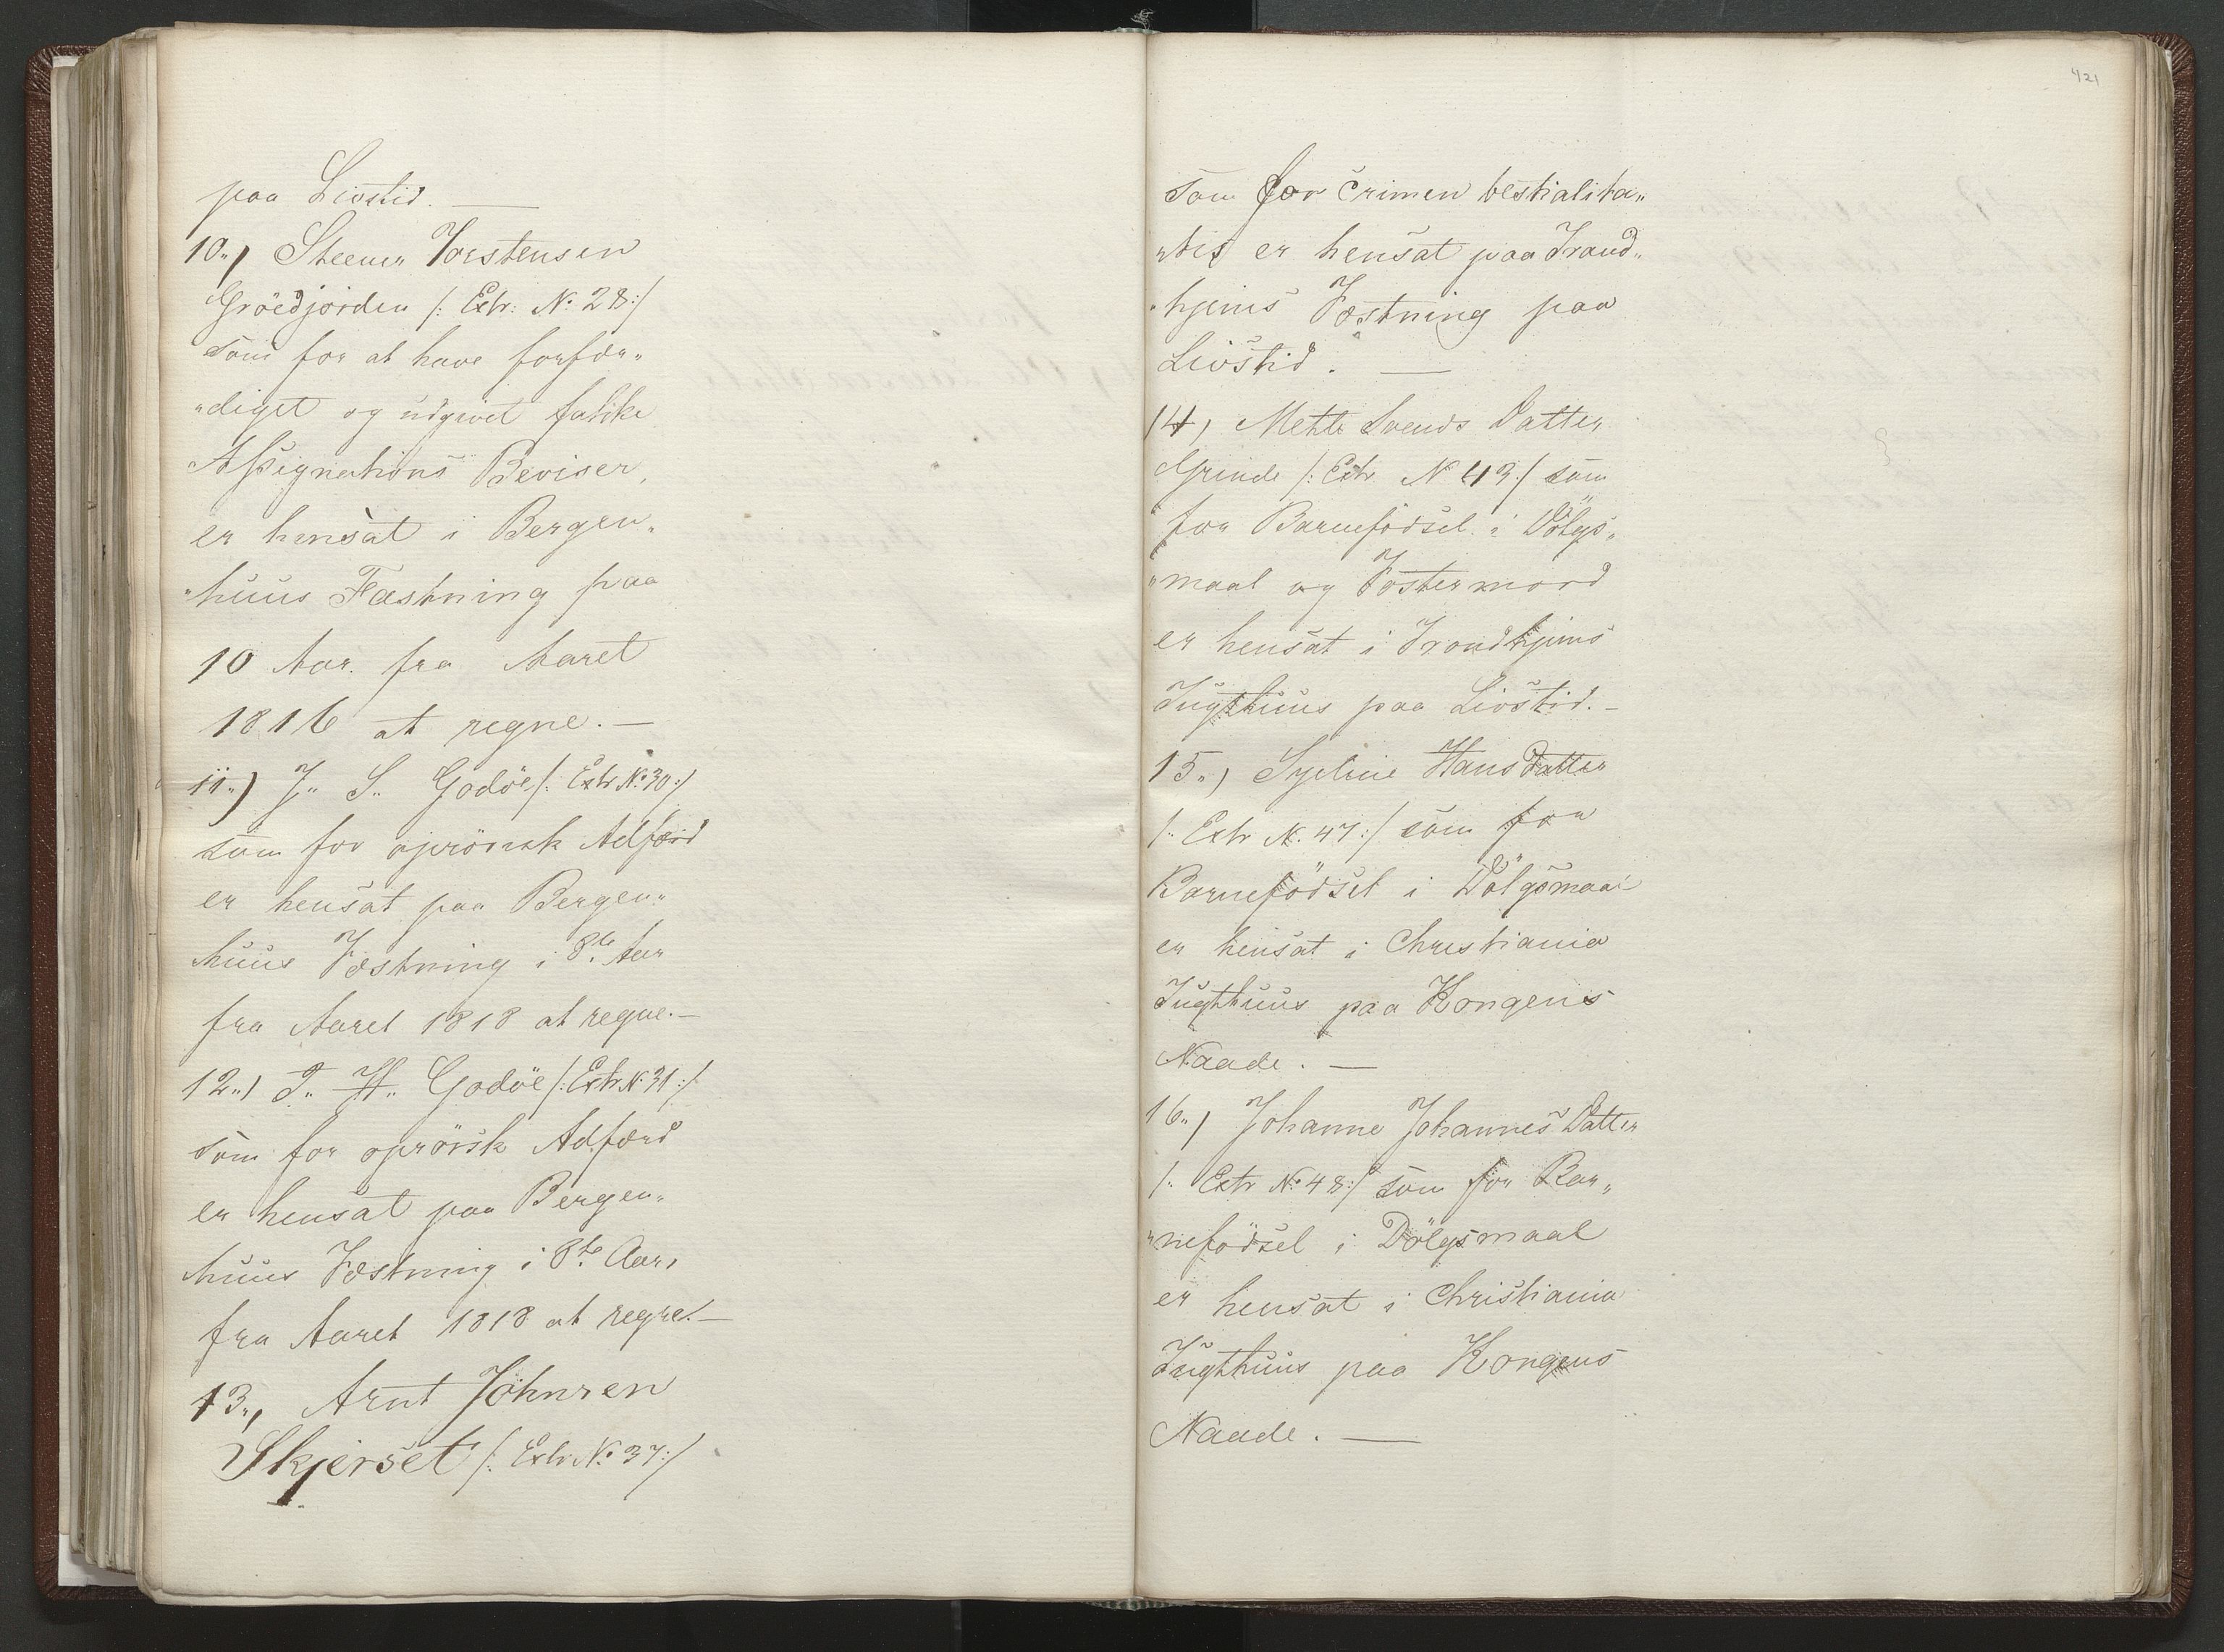 paa Livstid. —
10„) Steener Torstensen
Gröedjorden /: Extr: No 28:/
som for at have forfær„
„diget og udgivet falske
Assignations Beviser,
er hensat i Bergen„
„huus Fæstning paa
10 Aar. fra Aaret
1816 at regne. —
11„) J„ S„ Godöe /: Extr No 30:/
som for oprörsk Adfærd
er hensat paa Bergen„
huus Fæstning i 8te Aar
fra Aaret 1818 at regne. —
12„) T„ H„ Godöe /: Extr No 31:/
som for oprörsk Adfærd
er hensat paa Bergen„
huus Fæstning i 8te Aar,
fra Aaret 1818 at regne. —
13„, Arnt Johnsen
Skjerset /: Extr No 37:/
421
som for Crimen bestialita„
„tis er hensat paa Trond„
„hjems Fæstning paa
Livstid. —
14, Mette Svends Datter
Grinde /: Extr No 43:/ som
for Barnefödsel i Dölgs„
„maal og Fostermord
er hensat i Trondhjems
Tugthuus paa Livstid. —
15„, Syeline Hans Datter
/: Extr No 47:/ som for
Barnefödsel i Dölgsmaal
er hensat i Christiania
Tugthuus paa Kongens
Naade. —
16„) Johanne Johannes Datter
/: Extr No 48:/ som for Bar„
„nefödsel i Dölgsmaal
er hensat i Christiania
Tugthuus paa Kongens
Naade. —